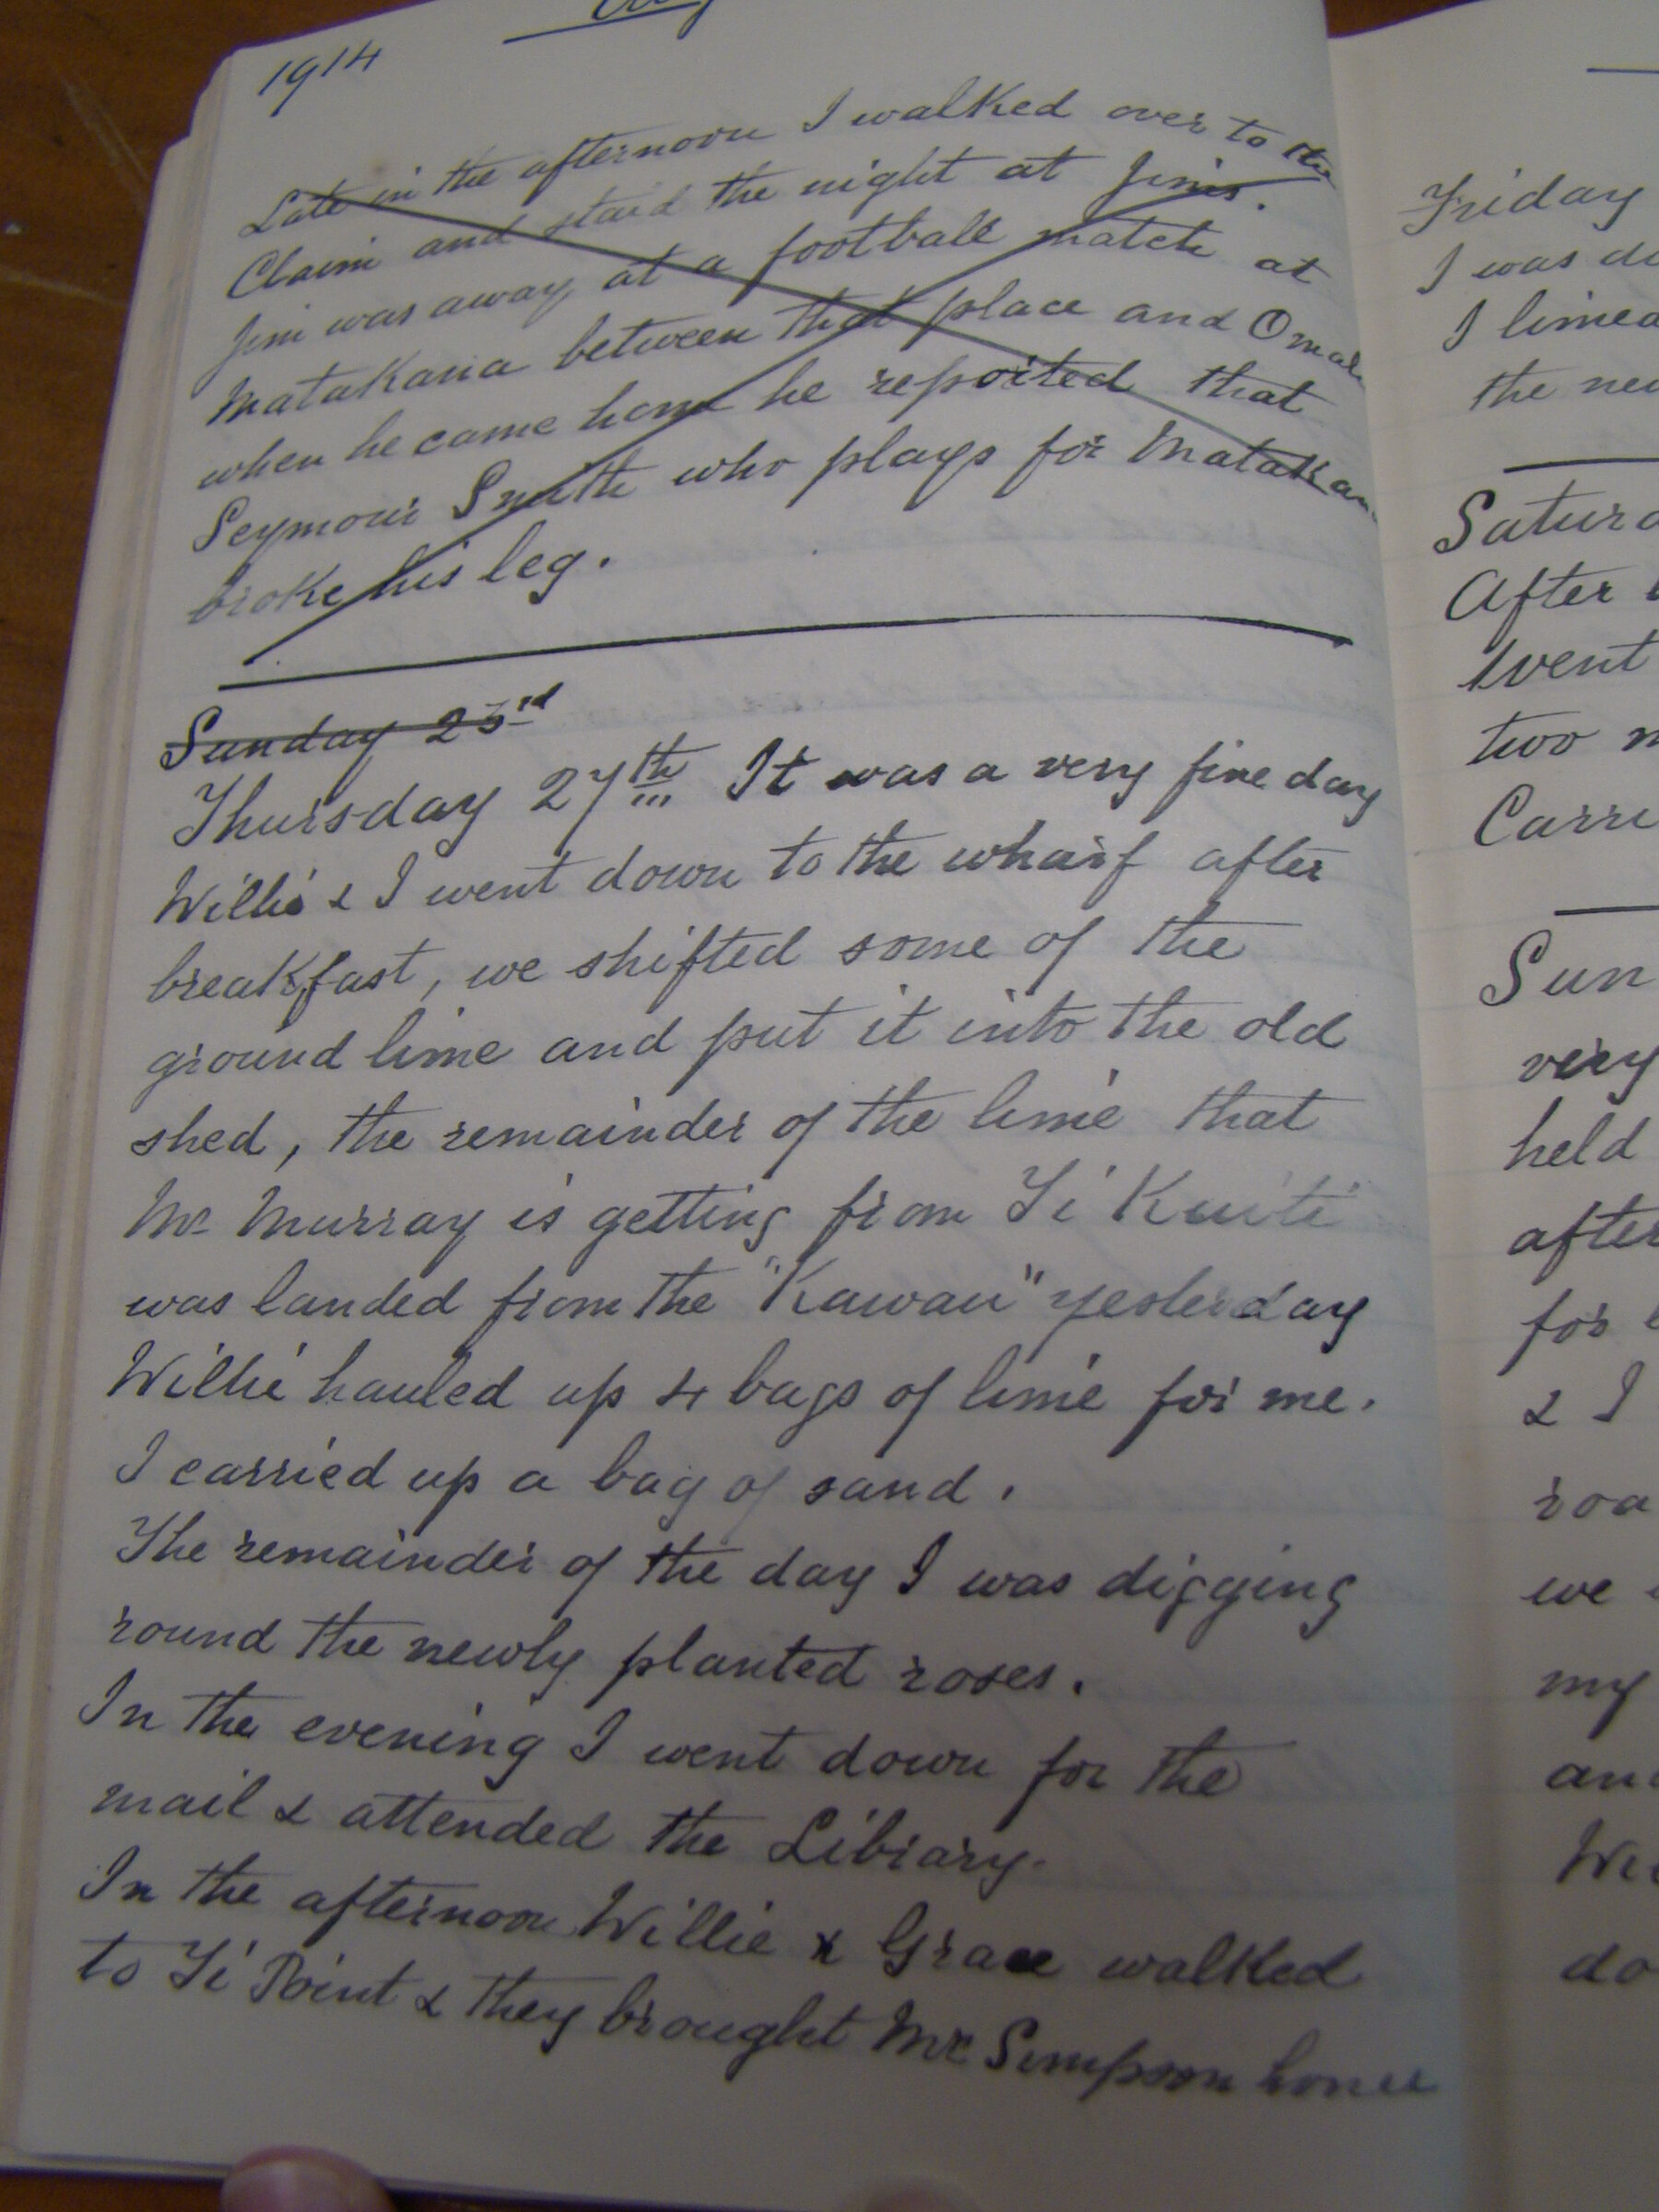 1914
Late in the afternoon I walked over to the
Claim and staid the night at Jim's.
Jim was away at a football match at
Matakana between that place and Omaha
when he came home he reported that
Seymour Smith who plays for Matakana
broke his leg.
Sunday 23rd
Thursday 27th It was a very fine day
Willie & I went down to the wharf after
breakfast, we shifted some of the
ground lime and put it into the old
shed, the remainder of the lime that
Mr Murray is getting from Te Kuiti
was landed from the "Kawau" yesterday
Willie hauled up 4 bags of lime for me.
I carried up a bag of sand.
The remainder of the day I was digging
round the newly planted roses.
In the evening I went down for the
mail & attended the Library.
In the afternoon Willie & Grace walked
to Ti Point & they brought Mr Simpson home
Friday
I was
I limed
the
After
went
two
Sun
very
held
after
for
& I
we
my